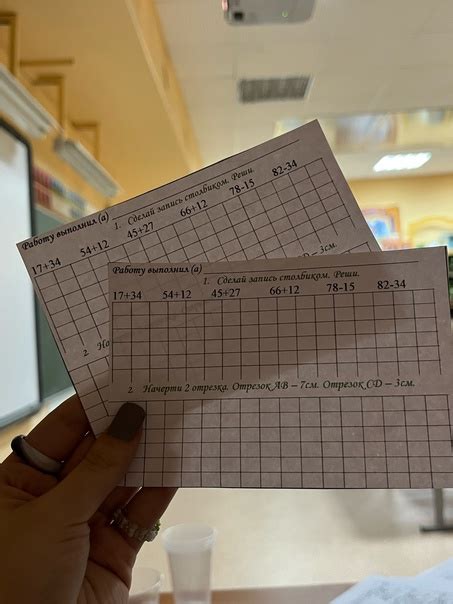 Работу выполнил (а)
1. Сделай запись столбиком. Реши.
17+34 54+12 45+27 66+12 78-15 82-34
– 3см.
2 На
Работу выполнил (а)
1. Сделай запись столбиком. Реши.
17+34 54+12 45+27 66+12 78-15 82-34
2. Начерти 2 отрезка. Отрезок АВ – 7см. Отрезок CD – 3см.